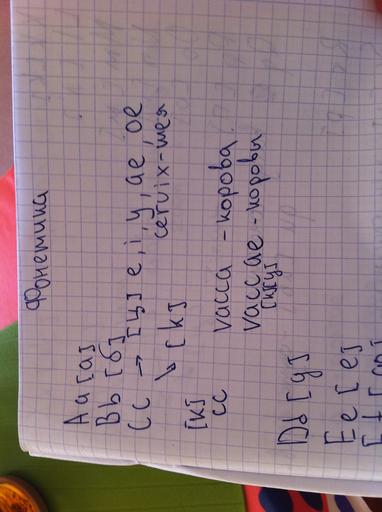 Фонетика
Aa [a]
Bb [б]
Cc → [ц] e, i, y, ae, oe
cervix - шея
↘ [k]
[к]
cc vacca - корова
vaccae - коровы
[к][ц]
Dd [д]
Ee [e]